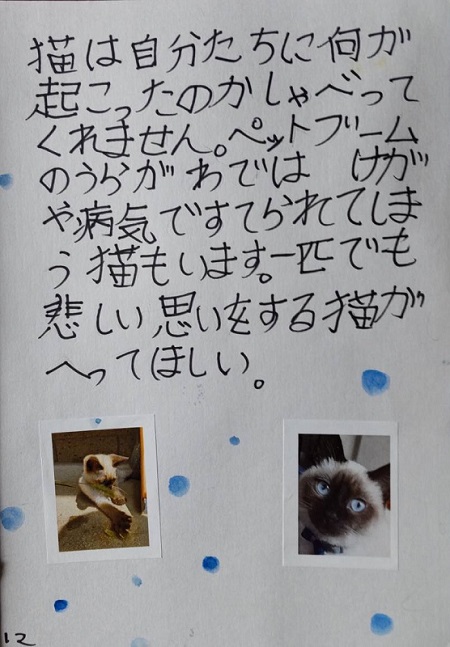 猫は自分たちに何が
起こったのかしゃべって
くれません。ペットブーム
のうらがわでは けが
や病気ですてられてしま
う猫もいます。一匹でも
悲しい思いをする猫が
へってほしい。
12